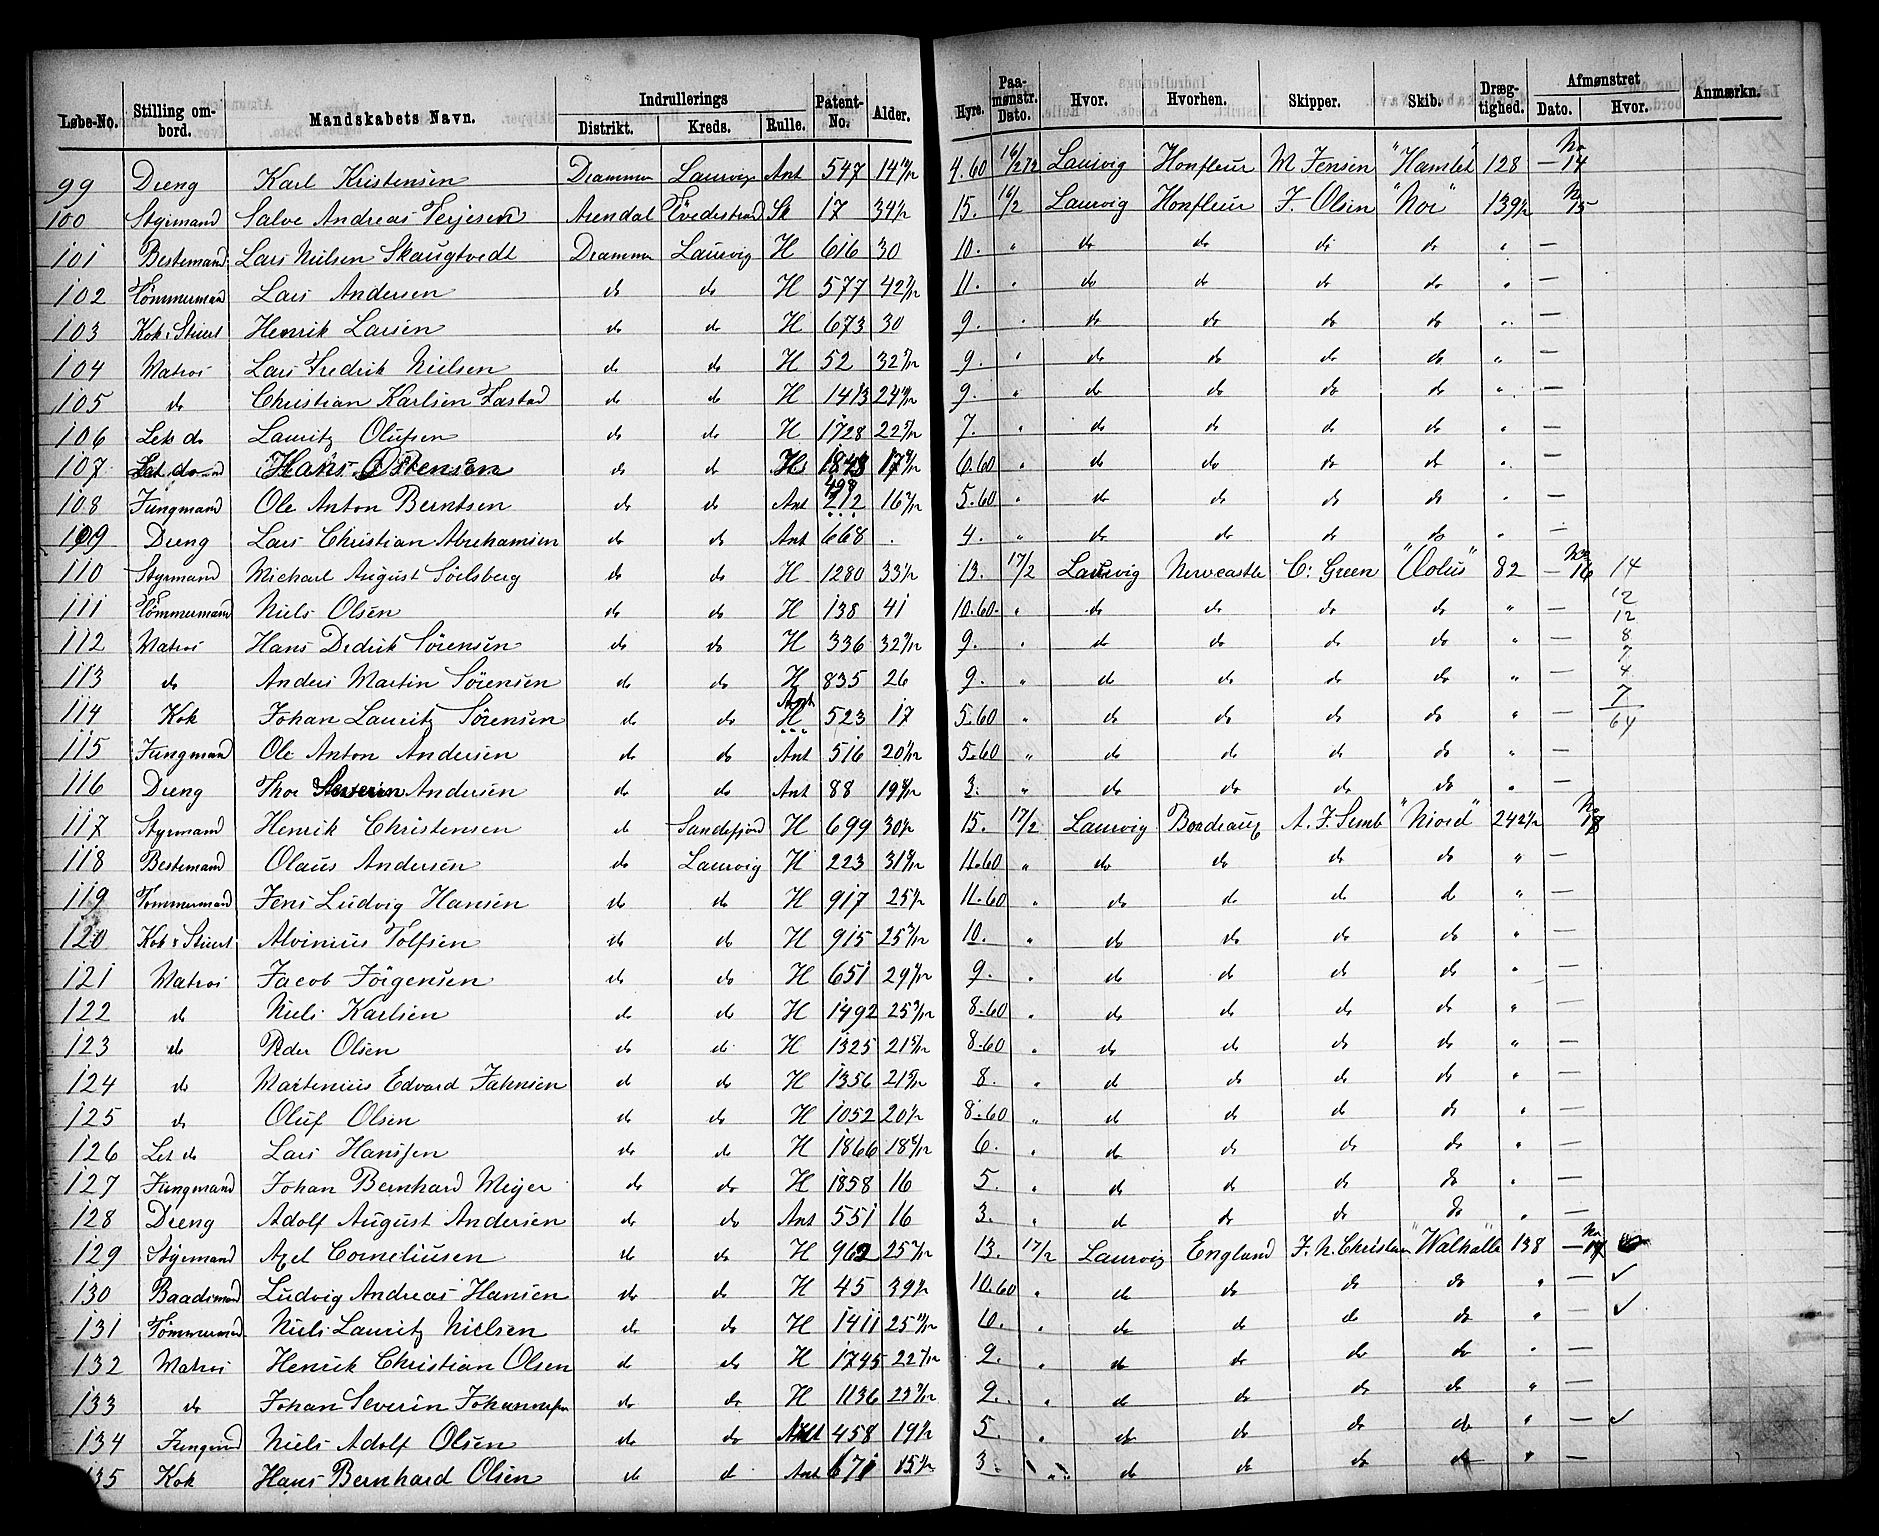 Løbe-No. Stilling ombord. Mandskabets Navn. Indrullerings Distrikt. Kreds. Rulle. Patent-No. Alder. Hyre. Paamønstr. Dato. Hvor. Hvorhen. Skipper. Skib. Drægtighed. Afmønstret Dato. Hvor. Anmærkn.
99 Dreng Karl Kristensen Drammen Laurvig Ant 547 14 4.60 16/2 72 Laurvig Honfleur M Jensen "Hamlet" 128 — No 14
100 Styrmand Salve Andreas Terjesen Arendal Tvedestrand Sk 17 34 15. 16/2 Laurvig Honfleur J. Olsen "Nor" 139½ No 15
101 Bestemand Lars Nielsen Skaugtvedt Drammen Laurvig H 616 30 10. " do do do do " —
102 Tömmermand Lars Andersen do do H 577 42 11. " do do do do " —
103 Kok & Stuert Henrik Larsen do do H 673 30 9. " do do do do " —
104 Matros Lars Fredrik Nielsen do do H 52 32 9. " do do do do " —
105 do Christian Karlsen Fastad do do H 1413 24 9. " do do do do " —
106 Let do Lauritz Olufsen do do H 1728 22 7. " do do do do " —
107 Let do Hans Ostensen do do H 1848 17 6.60 " do do do do " —
108 Jungmand Ole Anton Berntsen do do Ant 498 212 16 5.60 " do do do do " —
109 Dreng Lars Christian Abrahamsen do do Ant 668 . 4. " do do do do " —
110 Styrmand Michael August Söelsberg do do H 1280 33 13. 17/2 Laurvig Newcastle C: Green "Æolus" 82 — No 16 14
111 Tömmermand Niels Olsen do do H 138 41 10.60 " do do do do " — 12 12
112 Matros Hans Dedrik Sörensen do do H 336 32 9. " do do do do " — 8 7
113 do Anders Martin Sörensen do do H 835 26 9. " do do do do " — 4
114 Kok Johan Lauritz Sörensen do do Ant H 523 17 5.60 " do do do do " — 7 64
115 Jungmand Ole Anton Andersen do do Ant 516 20 5.60 " do do do do " —
116 Dreng Thor Severin Andersen do do Ant 88 19 3. " do do do do " —
117 Styrmand Henrik Christensen do Sandefjord H 699 30 15. 17/2 Laurvig Bordeaux A. F. Semb "Niord" 242½ No 18
118 Bestemand Olaus Andersen do Laurvig H 223 31 11.60 " do do do do " —
119 Tömmermand Jens Ludvig Hansen do do H 917 25 11.60 " do do do do " —
120 Kok & Stuert Alvinius Tolfsen do do H 915 25 10. " do do do do " —
121 Matros Jacob Jörgensen do do H 651 29 9. " do do do do " —
122 do Niels Karlsen do do H 1492 25 8.60 " do do do do " —
123 do Peder Olsen do do H 1325 21 8.60 " do do do do " —
124 do Martenius Edvard Jahnsen do do H 1356 21 8. " do do do do " —
125 do Oluf Olsen do do H 1052 20 8.60 " do do do do " —
126 Let do Lars Hanssen do do H 1866 18 6. " do do do do " —
127 Jungmand Johan Bernhard Meyer do do H 1858 16 5. " do do do do " —
128 Dreng Adolf August Andersen do do Ant 551 16 3. " do do do do " —
129 Styrmand Axel Corneliusen do do H 962 25 13. 17/2 Laurvig England J. N. Christian "Walhalla" 138 — No 17
130 Baadsmand Ludvig Andreas Hansen do do H 45 39 10.60 " do do do do " — ✓
131 Tömmermand Niels Lauritz Nielsen do do H 1411 25 10. " do do do do " — ✓
132 Matros Henrik Christian Olsen do do H 1745 22 9. " do do do do " —
133 do Johan Severin Johannessen do do H 1136 23 9. " do do do do " —
134 Jungmand Niels Adolf Olsen do do Ant 458 19 5. " do do do do " — ✓
135 Kok Hans Bernhard Olsen do do Ant 671 15 3. " do do do do " —